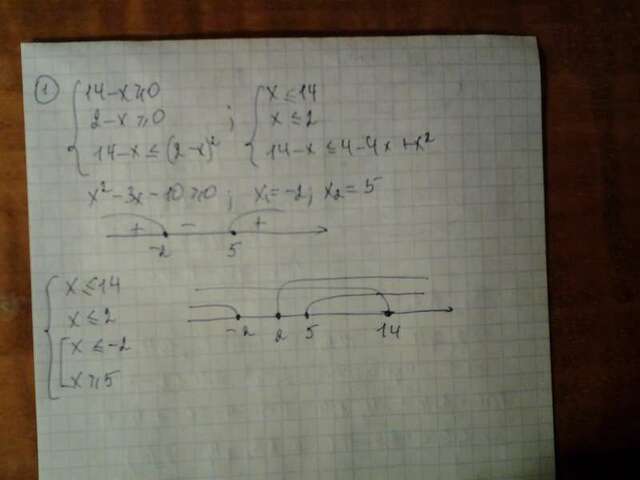 ① 14-x≥0
2-x≥0 ; x≤14
x≤2
14-x≤(2-x)² 14-x≤4-4x+x²
x²-3x-10≥0; x₁=-2; x₂=5
+ - +
-2 5
x≤14
x≤2
x≤-2
x≥5
-2 2 5 14